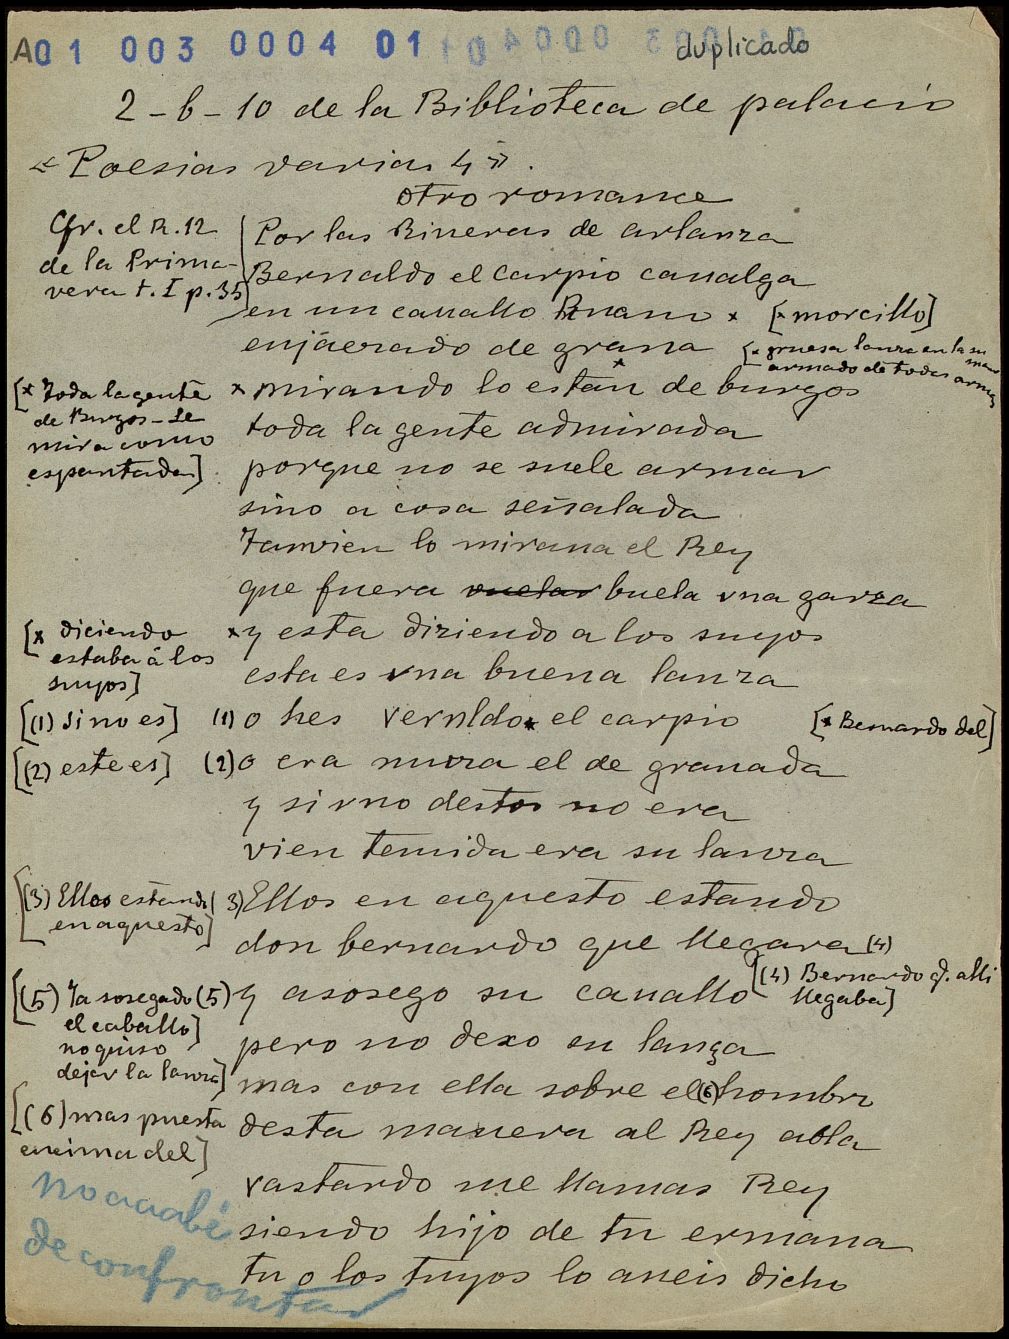 A01 003 0004 01
duplicado
2-b-10 de la Biblioteca de palacio
«Poesias varias 4».
otro romance
Cfr. el R. 12
de la Prima-
vera t. I p. 35
Por las Riueras de arlanza
Bernaldo el carpio caualga
en un cauallo Ruano * [* morcillo]
enjaezado de grana *
[* gruesa lanza en la su mano
armado de todas armas
[* Toda la gente
de Burgos - le
mira como
espantada]
* mirando lo están de burgos
toda la gente admirada
porque no se suele armar
sino a cosa señalada
Tanvien lo miraua el Rey
que fuera vuelar buela vna garza
[* diciendo
estaba á los
suyos]
* y esta diziendo a los suyos
esta es vna buena lanza
[(1) Si no es] (1) o hes vernldo * el carpio [* Bernardo del]
[(2) este es] (2) o era muza el de granada
y si vno destos no era
vien temida era su lanza
[(3) Ellos estando
en aquesto]
(3) Ellos en aquesto estando
don bernardo que llegara (4)
[(4) Bernardo q. alli
llegaba]
[(5) Ya sosegado
el caballo]
no quiso
dejar la lanza]
(5) y asosego su cauallo
pero no dexo su lança
mas con ella sobre el (6) hombro
[(6) mas puesta
encima del]
desta manera al Rey abla
vastardo me llamas Rey
siendo hijo de tu ermana
tu o los tuyos lo aueis dicho
no acabé
de confrontar